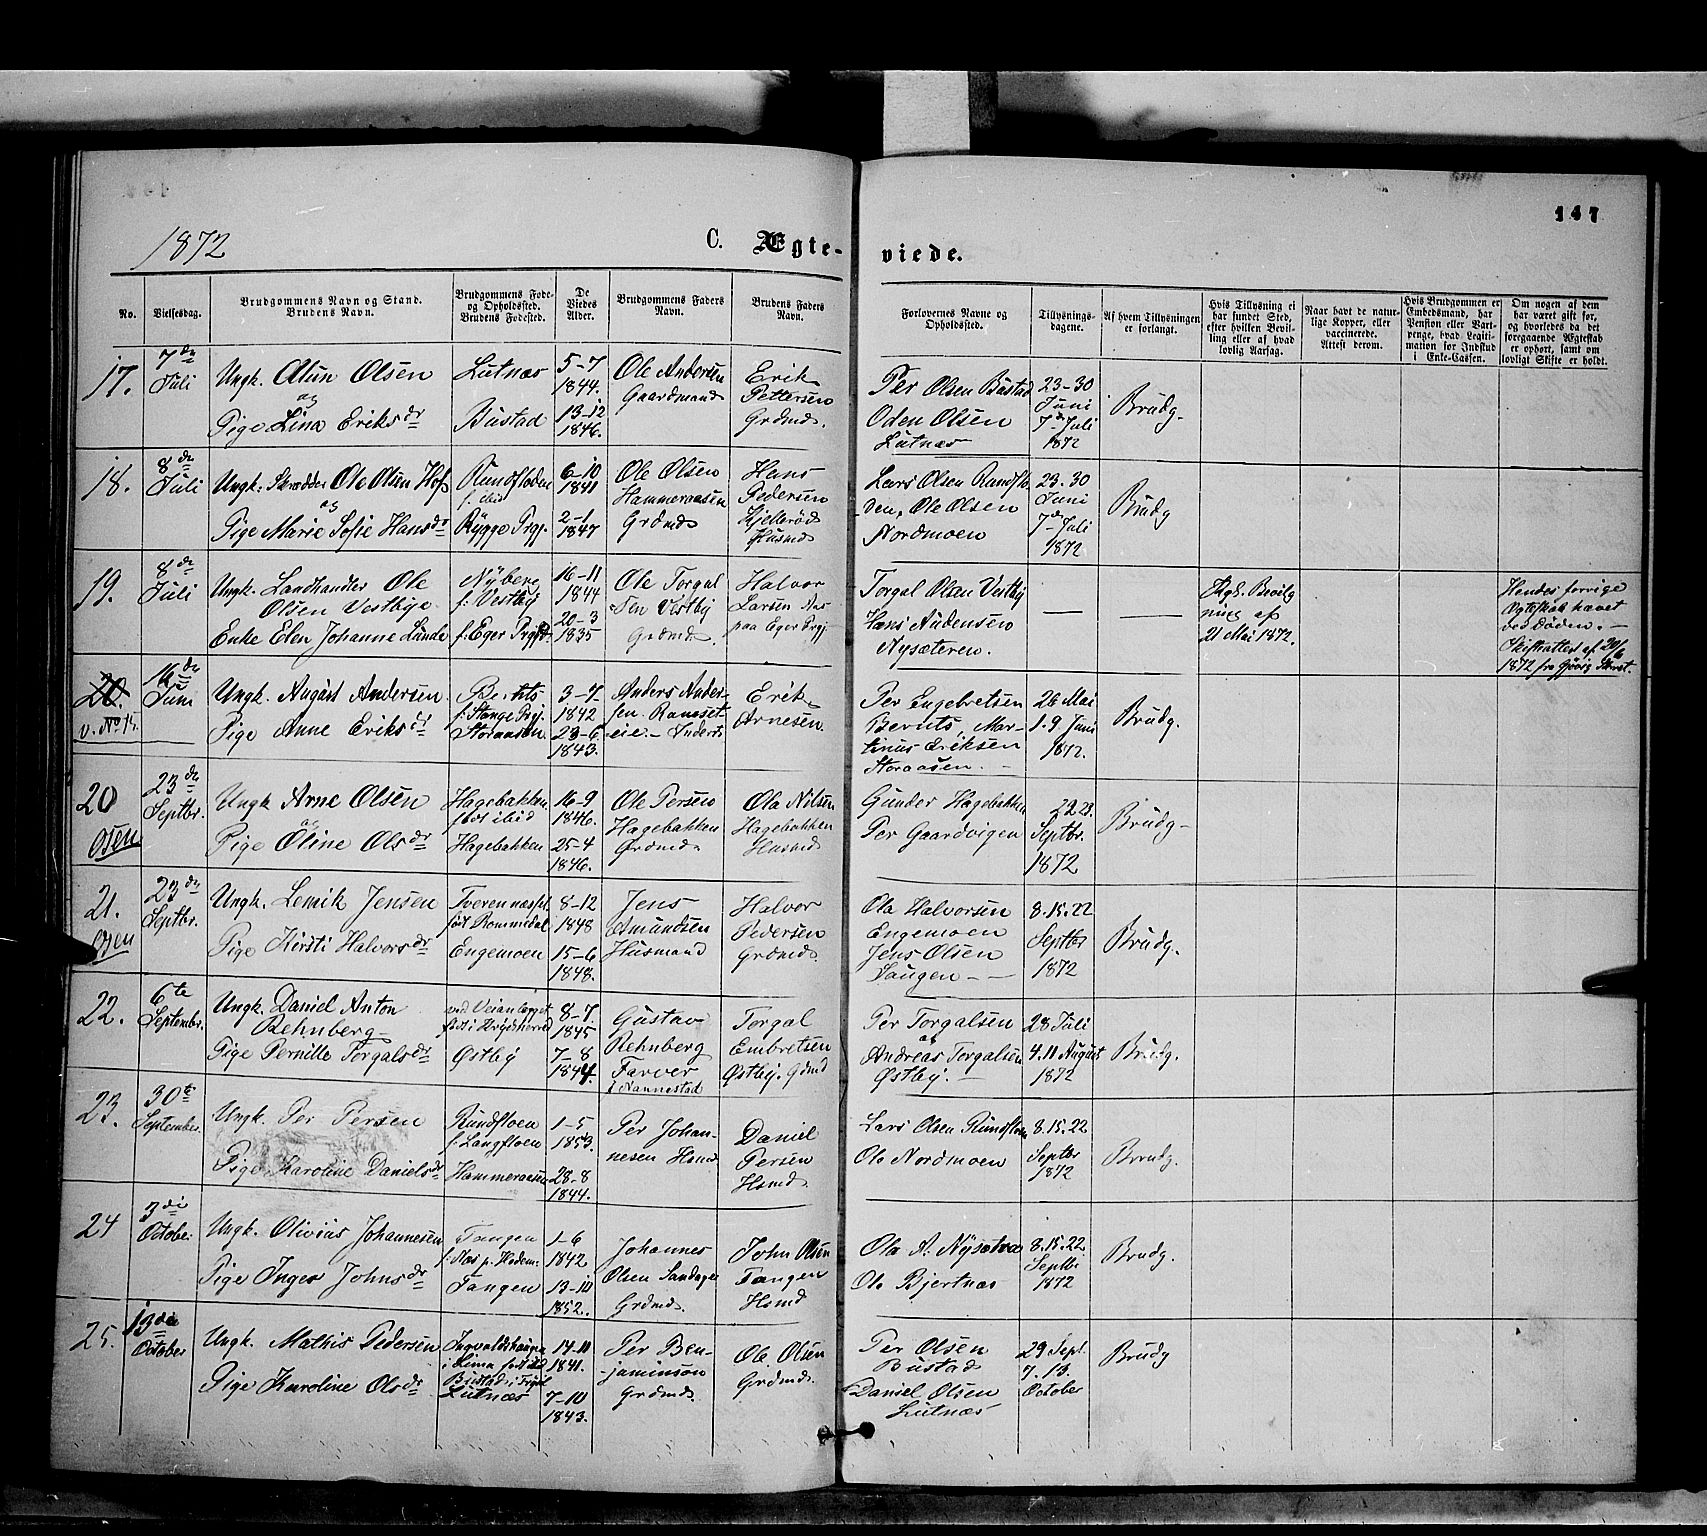 147
1872
C. Ægte-
viede.
No.
Vielsesdag.
Brudgommens Navn og Stand.
Brudens Navn.
Brudgommens Føde-
og Opholdssted.
Brudens Fødested.
De
Viedes
Alder.
Brudgommens Faders
Navn.
Brudens Faders
Navn.
Forlovernes Navne og
Opholdssted.
Tillysnings-
dagene.
Af hvem Tillysningen
er forlangt.
Hvis Tillysning ei
har fundet Sted,
efter hvilken Bevil-
ling eller af hvad
lovlig Aarsag.
Naar havt de natur-
lige Kopper, eller
vaccinerede.
Attest derom.
Hvis Brudgommen er
Embedsmand, har
Pension eller Vart-
penge, hvad Legiti-
mation for Indskud
i Enke-Cassen.
Om nogen af dem
har været gift før,
og hvorledes da det
foregaaende Ægteskab
er ophørt, samt om
lovligt Skifte er holdt.
17.
7de
Juli
Ungk. Olun Olsen
og
Pige Lina Eriksdr
Lutnæs
Bustad
5-7
1844.
13-12
1846.
Ole Andersen
Gaardmand
Erik
Pettersen
Grdmd.
Per Olsen Bustad
Oden Olsen
Lutnæs
23-30
Juni
7de Juli
1872
Brudg.
18.
8de
Juli
Ungk. Skrædder Ole Olsen Hof
og
Pige Marie Sofie Hansdr
Rundfloden
f. ibid
Rygge Prgj.
6-10
1841
2-1
1847
Ole Olsen
Hammeraasen
Grdmd.
Hans
Pedersen
Kjellerød
Husmd
Lars Olsen Rundflo-
den, Ole Olsen
Nordmoen
23-30
Juni
7de Juli
1872
Brudg
19.
8de
Juli
Ungk. Landhandler Ole
Olsen Vestbye.
Enke Elen Johanne Lunde
Nyberg
f. Vestby
f. Eger Prgj.
16-11
1844
20-3
1835
Ole Torgal
sen Vestby
Grdmd.
Halvor
Larsen Aas
paa Eger Prgj.
Torgal Olsen Vestby
Hans Audensen
Nysæteren.
Kgl. Bevilg
ning af
21 Mai 1872.
Hendes forrige
Ægteskab hævet
ved Døden. -
Skifteattest af 24/6
1872 fra Gjøvig
20.
v. No 15.
16de
Juni
Ungk. August Andersen
Pige Anne Eriksdr
Bernts
f. Stange Prgj.
Storaasen
3-7
1842
23-6
1843.
Anders Ander-
sen. Ramset-
eie. - Inderst
Erik
Arnesen
Per Engebretsen
Bernts, Mar-
tinus Eriksen
Storaasen. -
26 Mai
1.9 Juni
1872.
Brudg.
20
Osen
23de
Septbr.
Ungk Arne Olsen
og
Pige Oline Olsdr
Hagebakken
født ibid
Hagebakken
16-9
1846.
25-4
1846.
Ole Persen
Hagebakken
Grdmd.
Ola Nilsen
Hagebakken
Husmd
Gunder Hagebakken
Per Gaardvigen
22 23.
Septbr.
1872
Brudg-
21.
Osen
23de
Septbr.
Ungk. Lemik Jensen
Pige Kirsti Halvorsdr
født Rommedal
Engemoen
8-12
1848
15-6
1848.
Jens
Amundsen
Husmand
Halvor
Pedersen
Grdmd.
Ola Halvorsen
Engemoen
Jens Olsen
Haugen - -
8.15.22
Septbr
1872
Brudg.
22.
6te
September.
Ungk. Daniel Anton
Rehnberg
Pige Pernille Torgalsdr
ved Veianlægget
født i Krydsherred
Østby
8-7
1845
7-8
1844.
Gustav
Rehnberg
Farver
i Nannestad
Torgal
Embretsen
Østby. Grdmd
Per Torgalsen
og
Andreas Torgalsen
Østby. -
28 Juli
4.11 August
1872
Brudg.
23.
30te
September.
Ungk. Per Persen
Pige Karoline Danielsdr
Rundfloen
f. Langfloen
Hammeraasen
1-5
1853.
28-8
1844.
Per Johan-
nesen Hsmd
Daniel
Persen
Hsmd.
Lars Olsen Rundfloen
Ola Nordmoen
8.15.22
Septbr
1872
Brudg.
24
3die
October.
Ungk. Olivius Johannesen
Pige Inger Johnsdr
Tangen
f. Næs p. Hedem.
Tangen
1-6
1842
13-10
1852.
Johannes
Olsen Sandager
Grdmd.
John Olsen
Tangen
Hsmd
Ola A. Nysætra
Ola Bjertnæs
8.15.22
Septbr
1872
Brudg.
25.
13de
October
Ungk. Mathis Pedersen
Pige Karoline Olsdr
i Lima født id
Bustad i Trysil
Lutnæs
14-10
1841.
7-10
1843.
Per Ben-
jaminson
Grdmd.
Ole Olsen
Grdmd.
Per Olsen
Bustad
Daniel Olsen
Lutnæs
29 Sept.
7.13.
October
Brudg